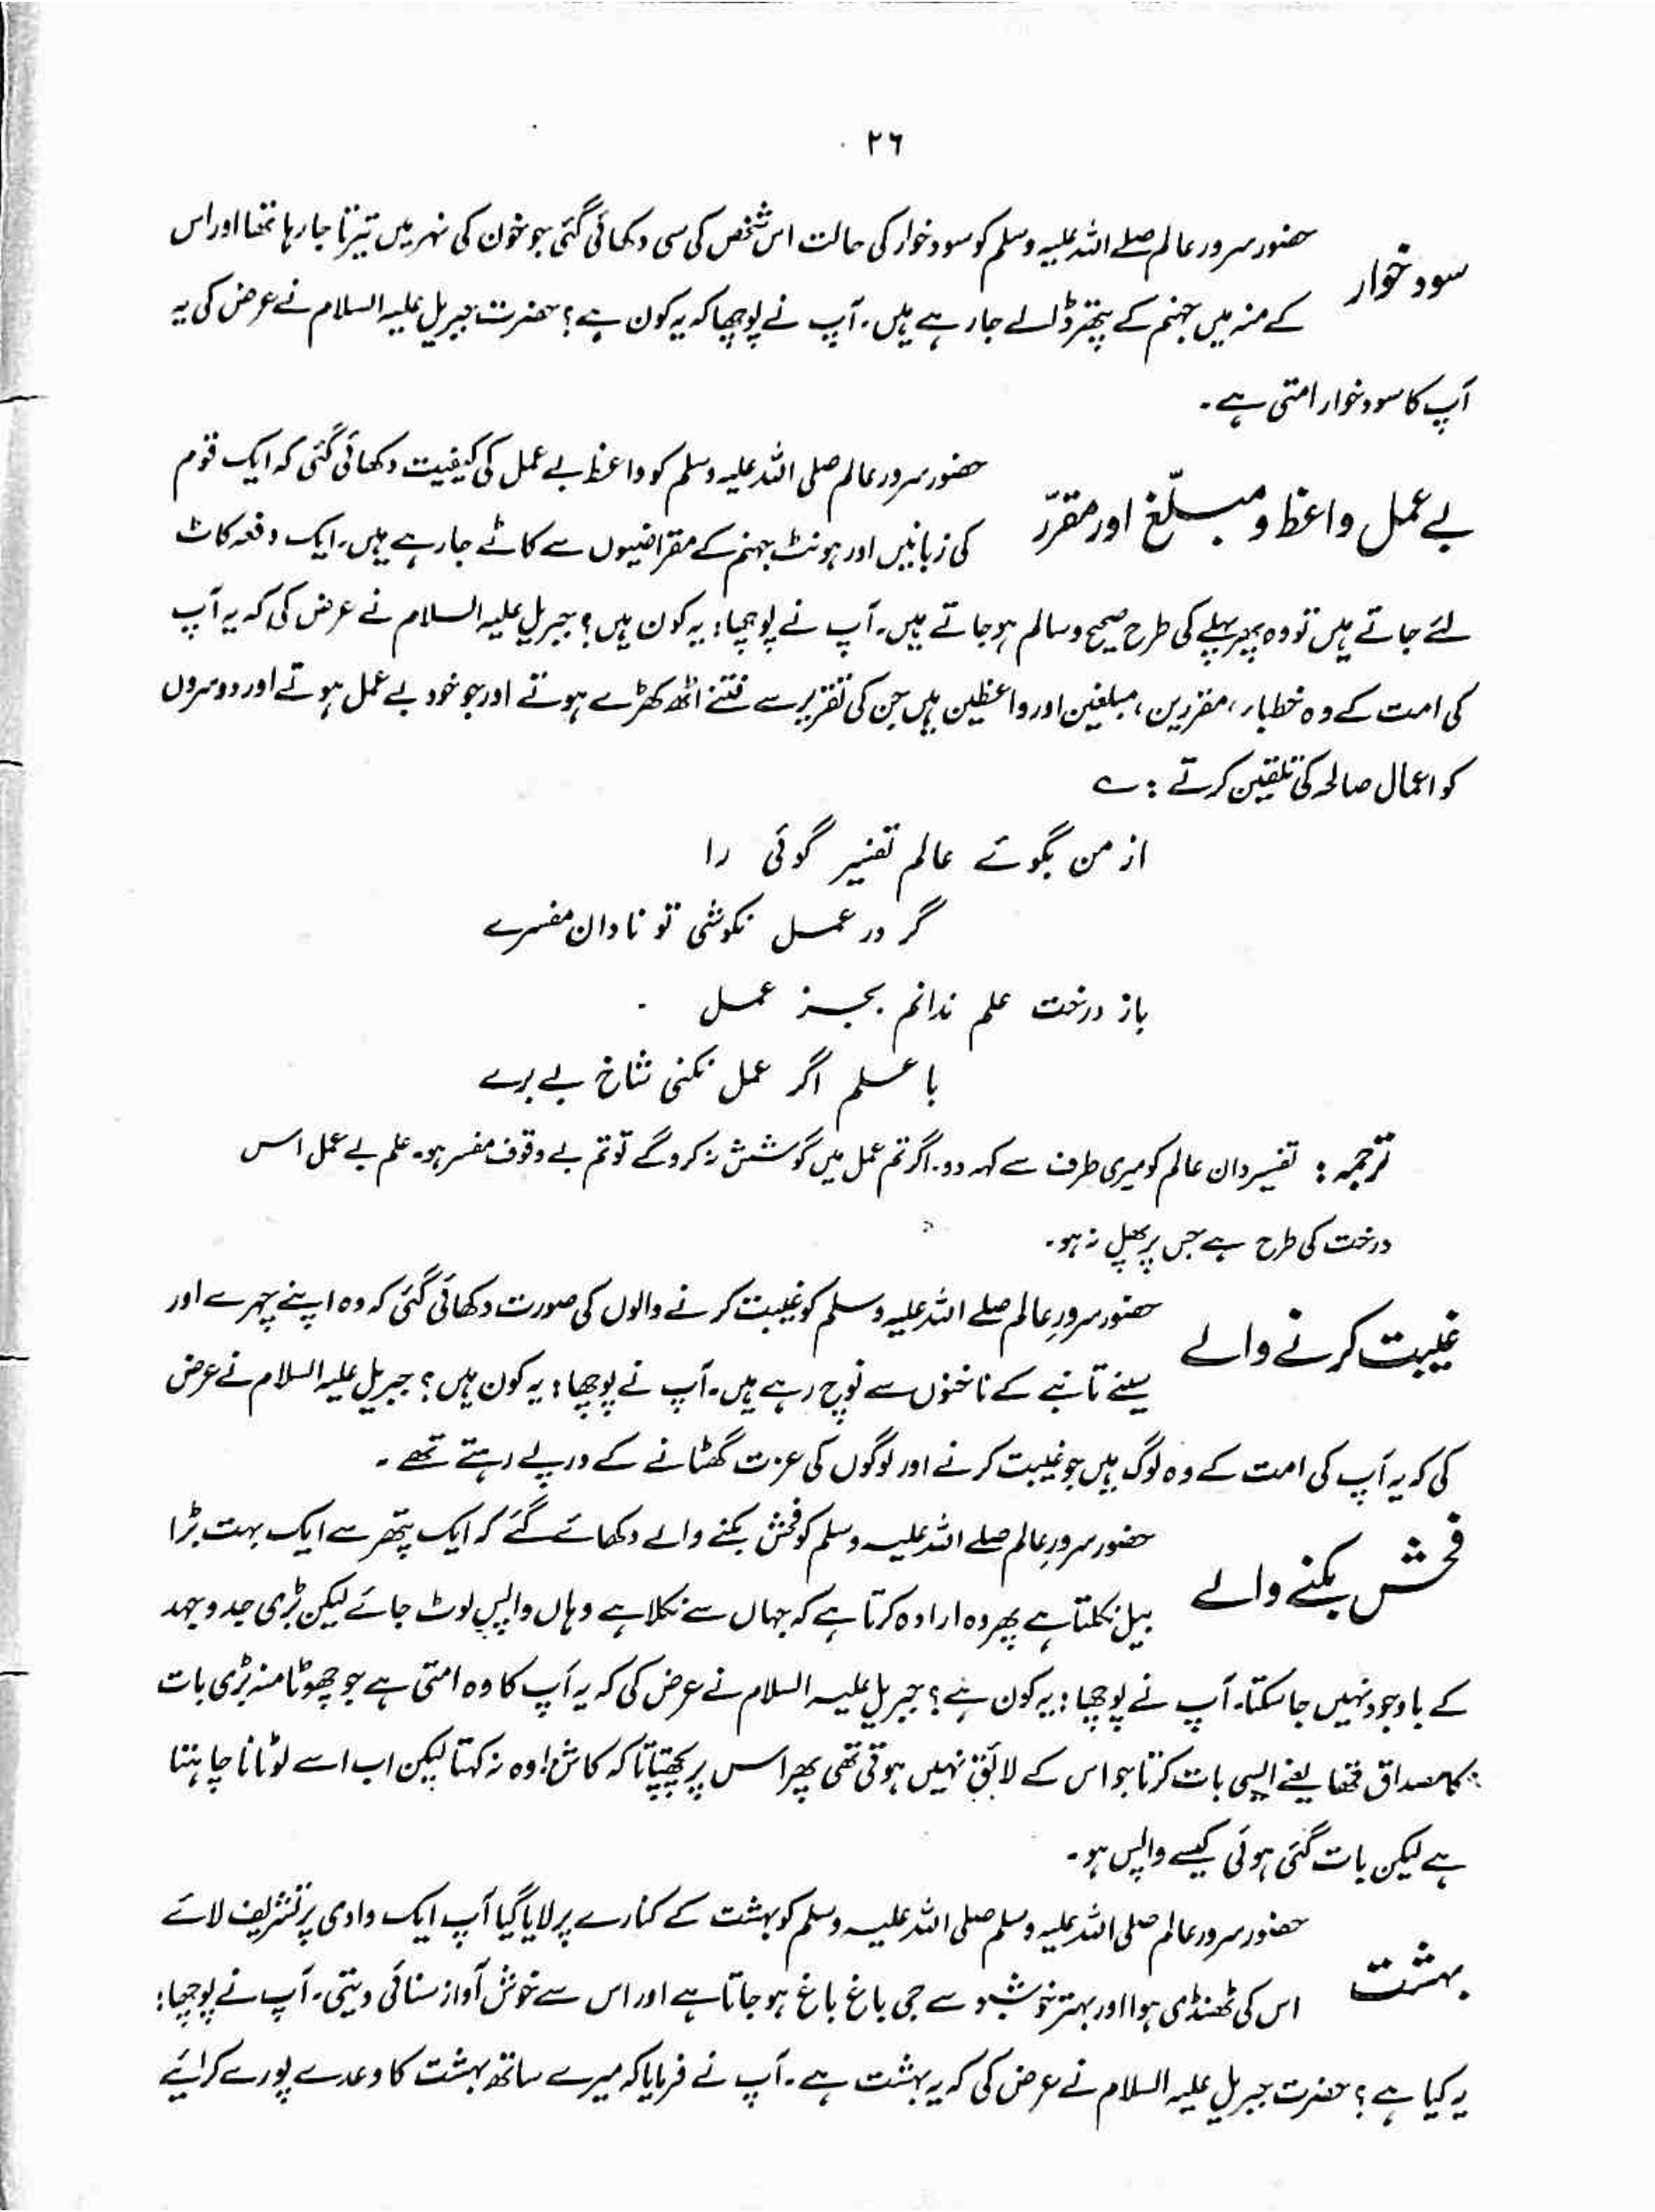 ۲۶
حضور سرور عالم صلے اللہ علیہ وسلم کو سود خوار کی حالت اس شخص کی سی دکھائی گئی جو خون کی نہر میں تیرتا جا رہا تھا اور اس
سود خوار
کے منہ میں جہنم کے پتھر ڈالے جار ہے ہیں۔ آپ نے پوچھا کہ یہ کون ہے؟ حضرت جبریل علیہ السلام نے عرض کی یہ
آپ کا سود خوار امتی ہے۔
حضور سرور عالم صلی اللہ علیہ وسلم کو واعظ بے عمل کی کیفیت دکھائی گئی کہ ایک قوم
بے عمل واعظ و مبلّغ اور مقرّر
کی زبانیں اور ہونٹ جہنم کے مقراضیوں سے کاٹے جار ہے ہیں۔ ایک دفعہ کاٹ
لئے جاتے ہیں تو وہ پھر پہلے کی طرح صحیح و سالم ہو جاتے ہیں۔ آپ نے پوچھا: یہ کون ہیں؟ جبریل علیہ السلام نے عرض کی کہ یہ آپ
کی امت کے وہ خطباء، مقررین، مبلغین اور واعظین ہیں جن کی تقریر سے فتنے اٹھ کھڑے ہوتے اور جو خود بے عمل ہوتے اور دوسروں
کو اعمال صالحہ کی تلقین کرتے : ے
از من بگوئے عالم تفسیر گوئی را
گر در عمل نکوشی تو نادان مفسرے
باز درخت علم ندانم بجز عمل
با علم اگر عمل نکنی شاخ بے برے
ترجمہ : تفسیر دان عالم کو میری طرف سے کہہ دو۔ اگر تم عمل میں کوشش نہ کرو گے تو تم بے وقوف مفسر ہو۔ علم بے عمل اس
درخت کی طرح ہے جس پر پھل نہ ہو۔
حضور سرورِ عالم صلے اللہ علیہ وسلم کو غیبت کرنے والوں کی صورت دکھائی گئی کہ وہ اپنے چہرے اور
غیبت کرنے والے
سینے تانبے کے ناخنوں سے نوچ رہے ہیں۔ آپ نے پوچھا: یہ کون ہیں؟ جبریل علیہ السلام نے عرض
کی کہ یہ آپ کی امت کے وہ لوگ ہیں جو غیبت کرنے اور لوگوں کی عزت گھٹانے کے درپے رہتے تھے۔
حضور سرورِ عالم صلے اللہ علیہ وسلم کو فحش بکنے والے دکھائے گئے کہ ایک پتھر سے ایک بہت بڑا
فحش بکنے والے
بیل نکلتا ہے پھر وہ ارادہ کرتا ہے کہ جہاں سے نکلا ہے وہاں واپس لوٹ جائے لیکن بڑی جدوجہد
کے باوجود نہیں جا سکتا۔ آپ نے پوچھا: یہ کون ہے؟ جبریل علیہ السلام نے عرض کی کہ یہ آپ کا وہ امتی ہے جو چھوٹا منہ بڑی بات
کا مصداق تھا یعنے ایسی بات کرتا جو اس کے لائق نہیں ہوتی تھی پھر اس پر پچھتاتا کہ کاش! وہ نہ کہتا لیکن اب اسے لوٹانا چاہتا
ہے لیکن بات گئی ہوئی کیسے واپس ہو۔
حضور سرور عالم صلی اللہ علیہ وسلم صلی اللہ علیہ وسلم کو بہشت کے کنارے پر لایا گیا آپ ایک وادی پر تشریف لائے
بہشت
اس کی ٹھنڈی ہوا اور بہتر خوشبو سے جی باغ باغ ہو جاتا ہے اور اس سے خوش آواز سنائی دیتی۔ آپ نے پوچھا:
یہ کیا ہے؟ حضرت جبریل علیہ السلام نے عرض کی کہ یہ بہشت ہے۔ آپ نے فرمایا کہ میرے ساتھ بہشت کا وعدے پورے کرائیے